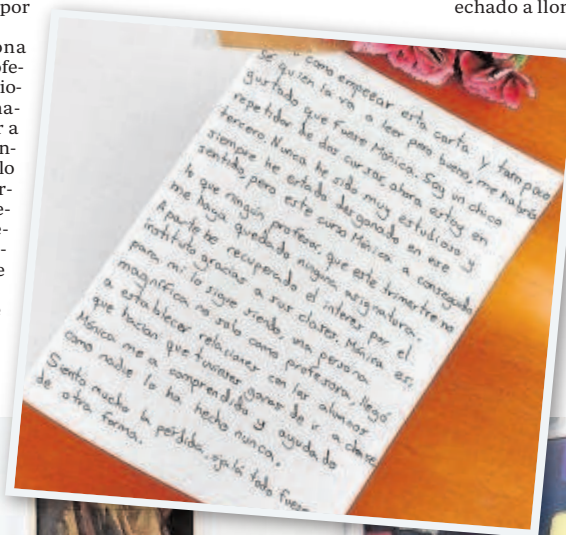 por
ona
ofe-
io-
na-
r a
n-
lo
r-
e-
e-
-
e
echado a llor
como empezar esta carta y tampoco
se quien la va a leer pero bueno, me habría
gustado que fuese Mónica. Soy un chico
repetidor de dos cursos, ahora estoy en
tercero. Nunca he sido muy estudioso y
siempre he estado desganado en ese
sentido, pero este curso Mónica a conseguido
lo que ningún profesor, que este trimestre no
me haya quedado ninguna asignatura.
Aparte he recuperado el interes por el
instituto gracias a sus clases. Mónica es,
para mi lo sigue siendo, una persona
magnífica no solo como profesora, llegó
a establecer relaciones con los alumnos
que hacían que tuvieses ganas de ir a clase
Mónica me a comprendido y ayudado
como nadie lo ha hecho nunca.
Siento mucho la perdida, ojalá todo fuese
de otra forma.